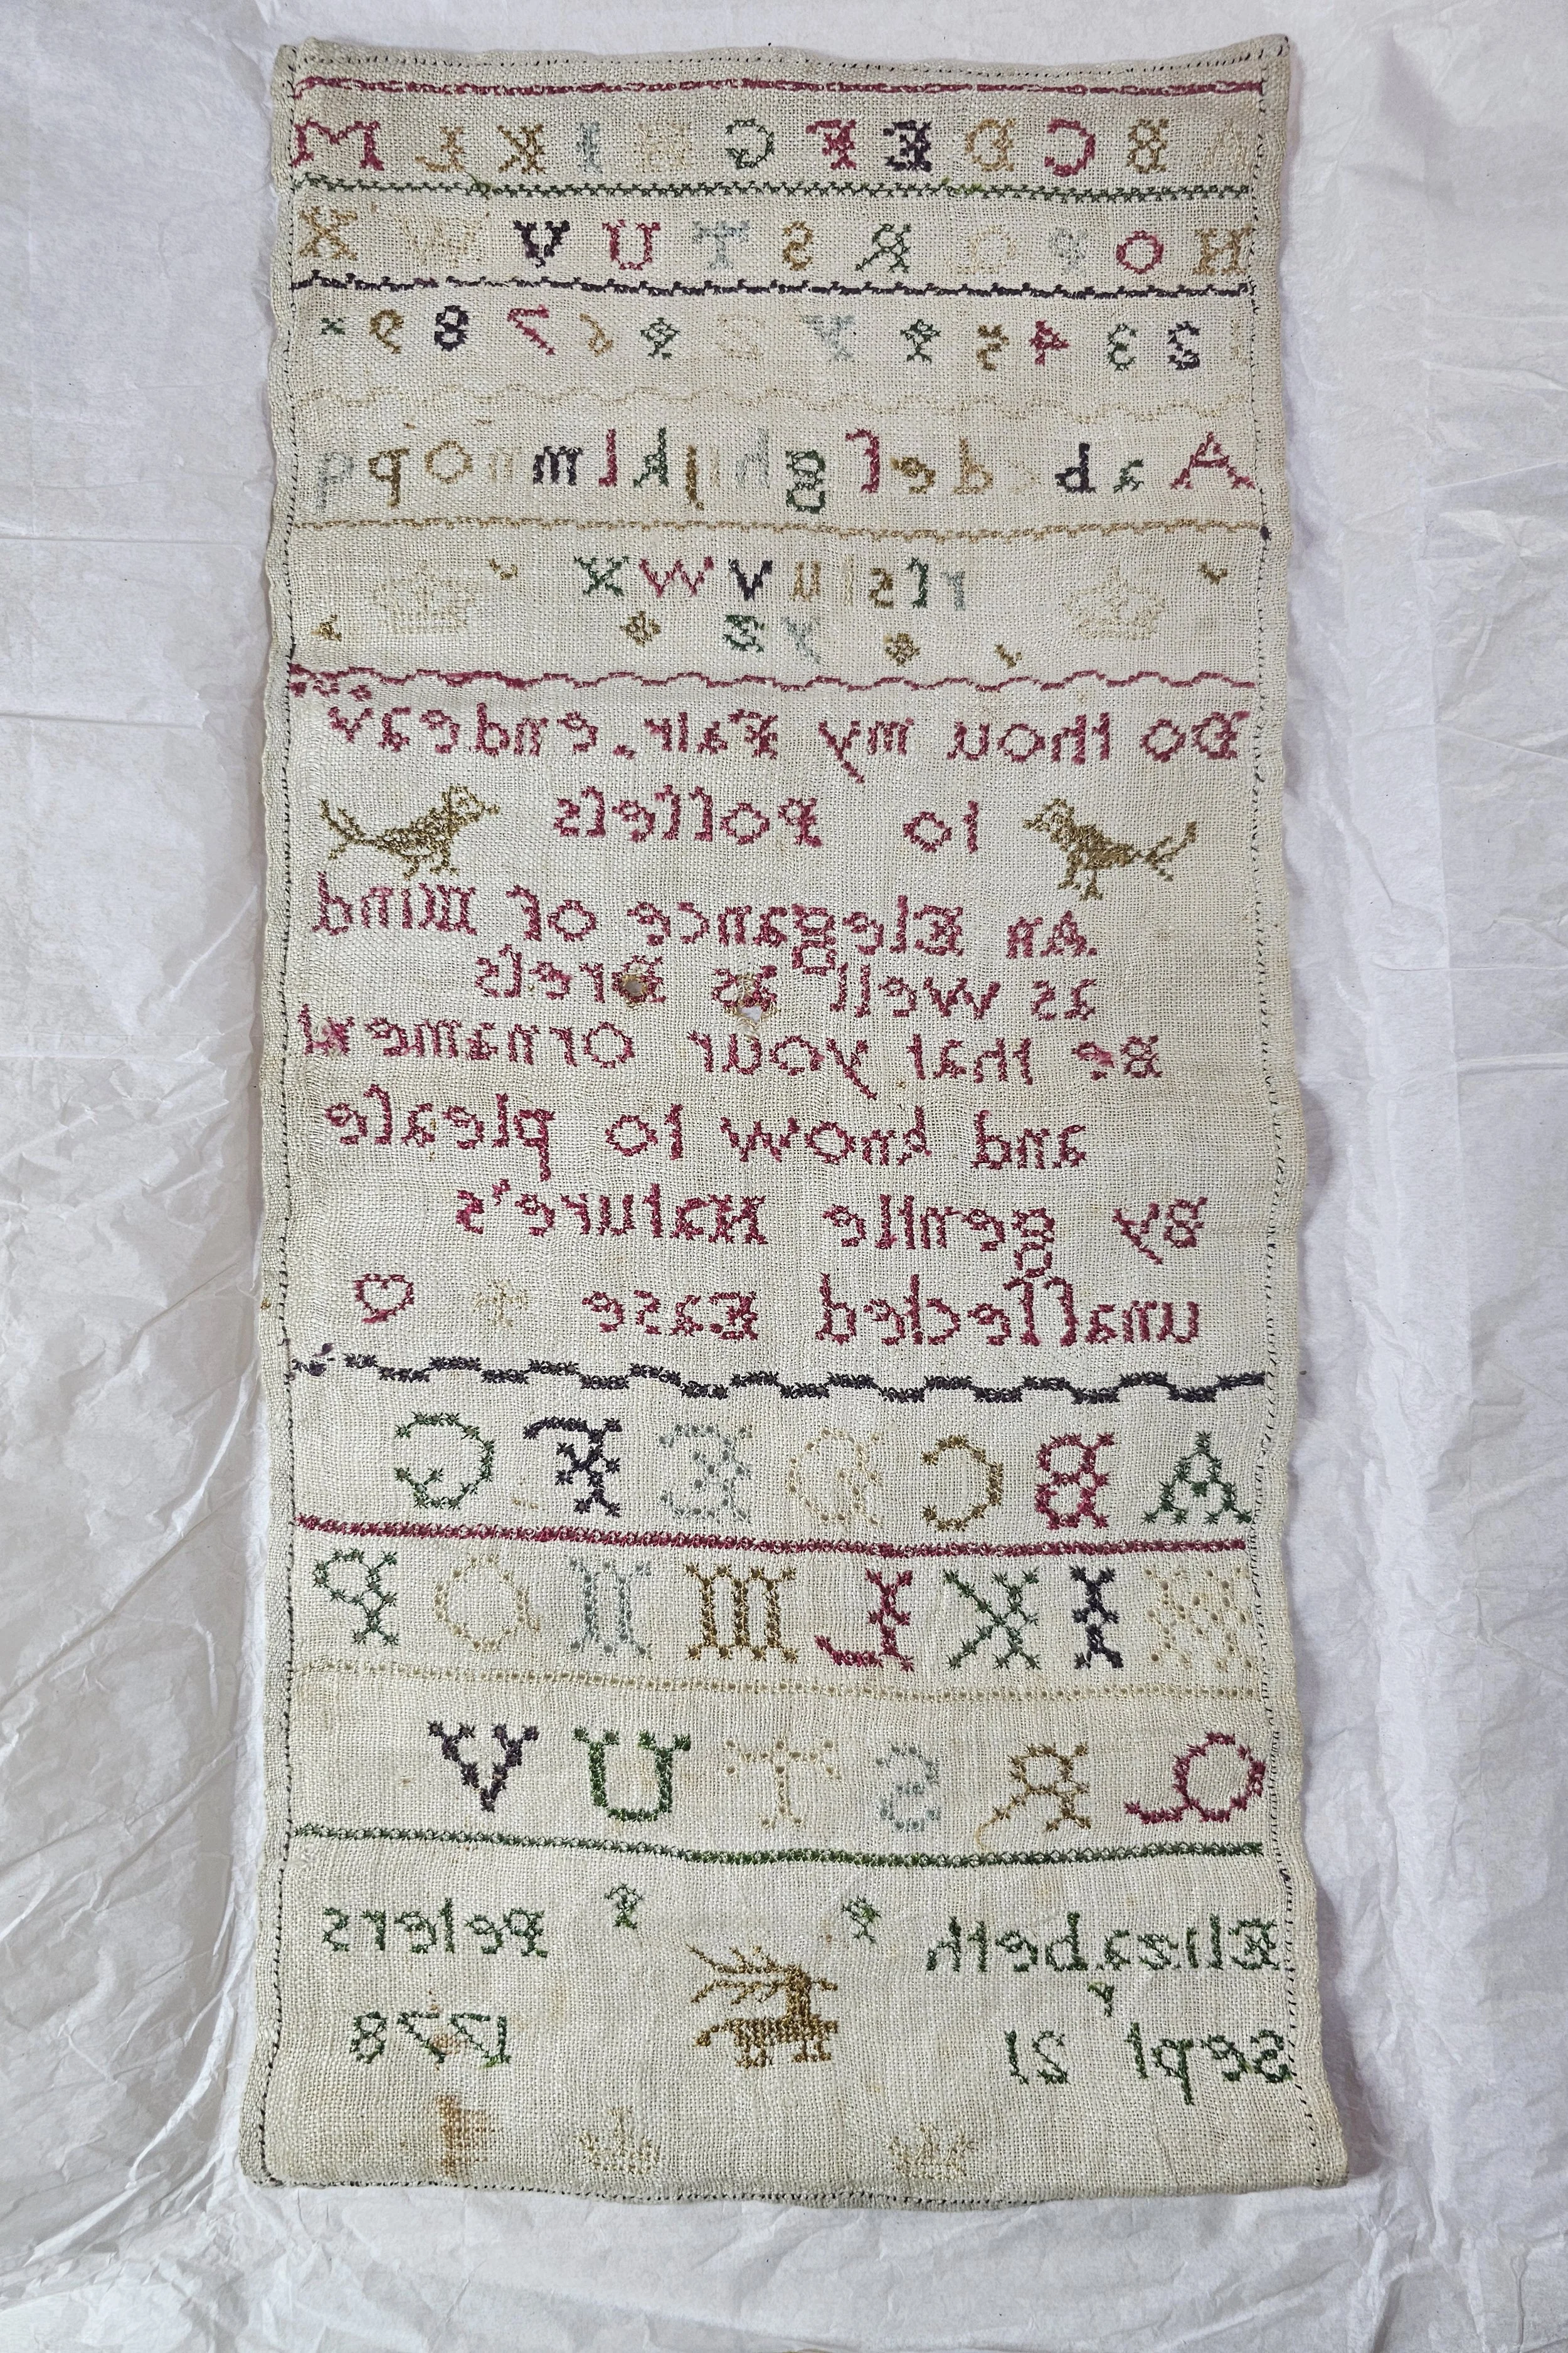 A B C D E F G H I K L M
N O P Q R S T U V W X
1 2 3 4 5 Y Z 6 7 8 9
A a b c d e f g h i j k l m n o p q
r ſ s t u v w x
y z
Do thou my Fair, endeav
to Poſſeſs
An Elegance of Mind
as well as Dreſs
Be that your Ornament
and know to pleaſe
By gentle Nature's
unaffected Ease
A B C D E F G
H I K L M N O P
Q R S T U V
Elizabeth Peters
Septr 21 1778